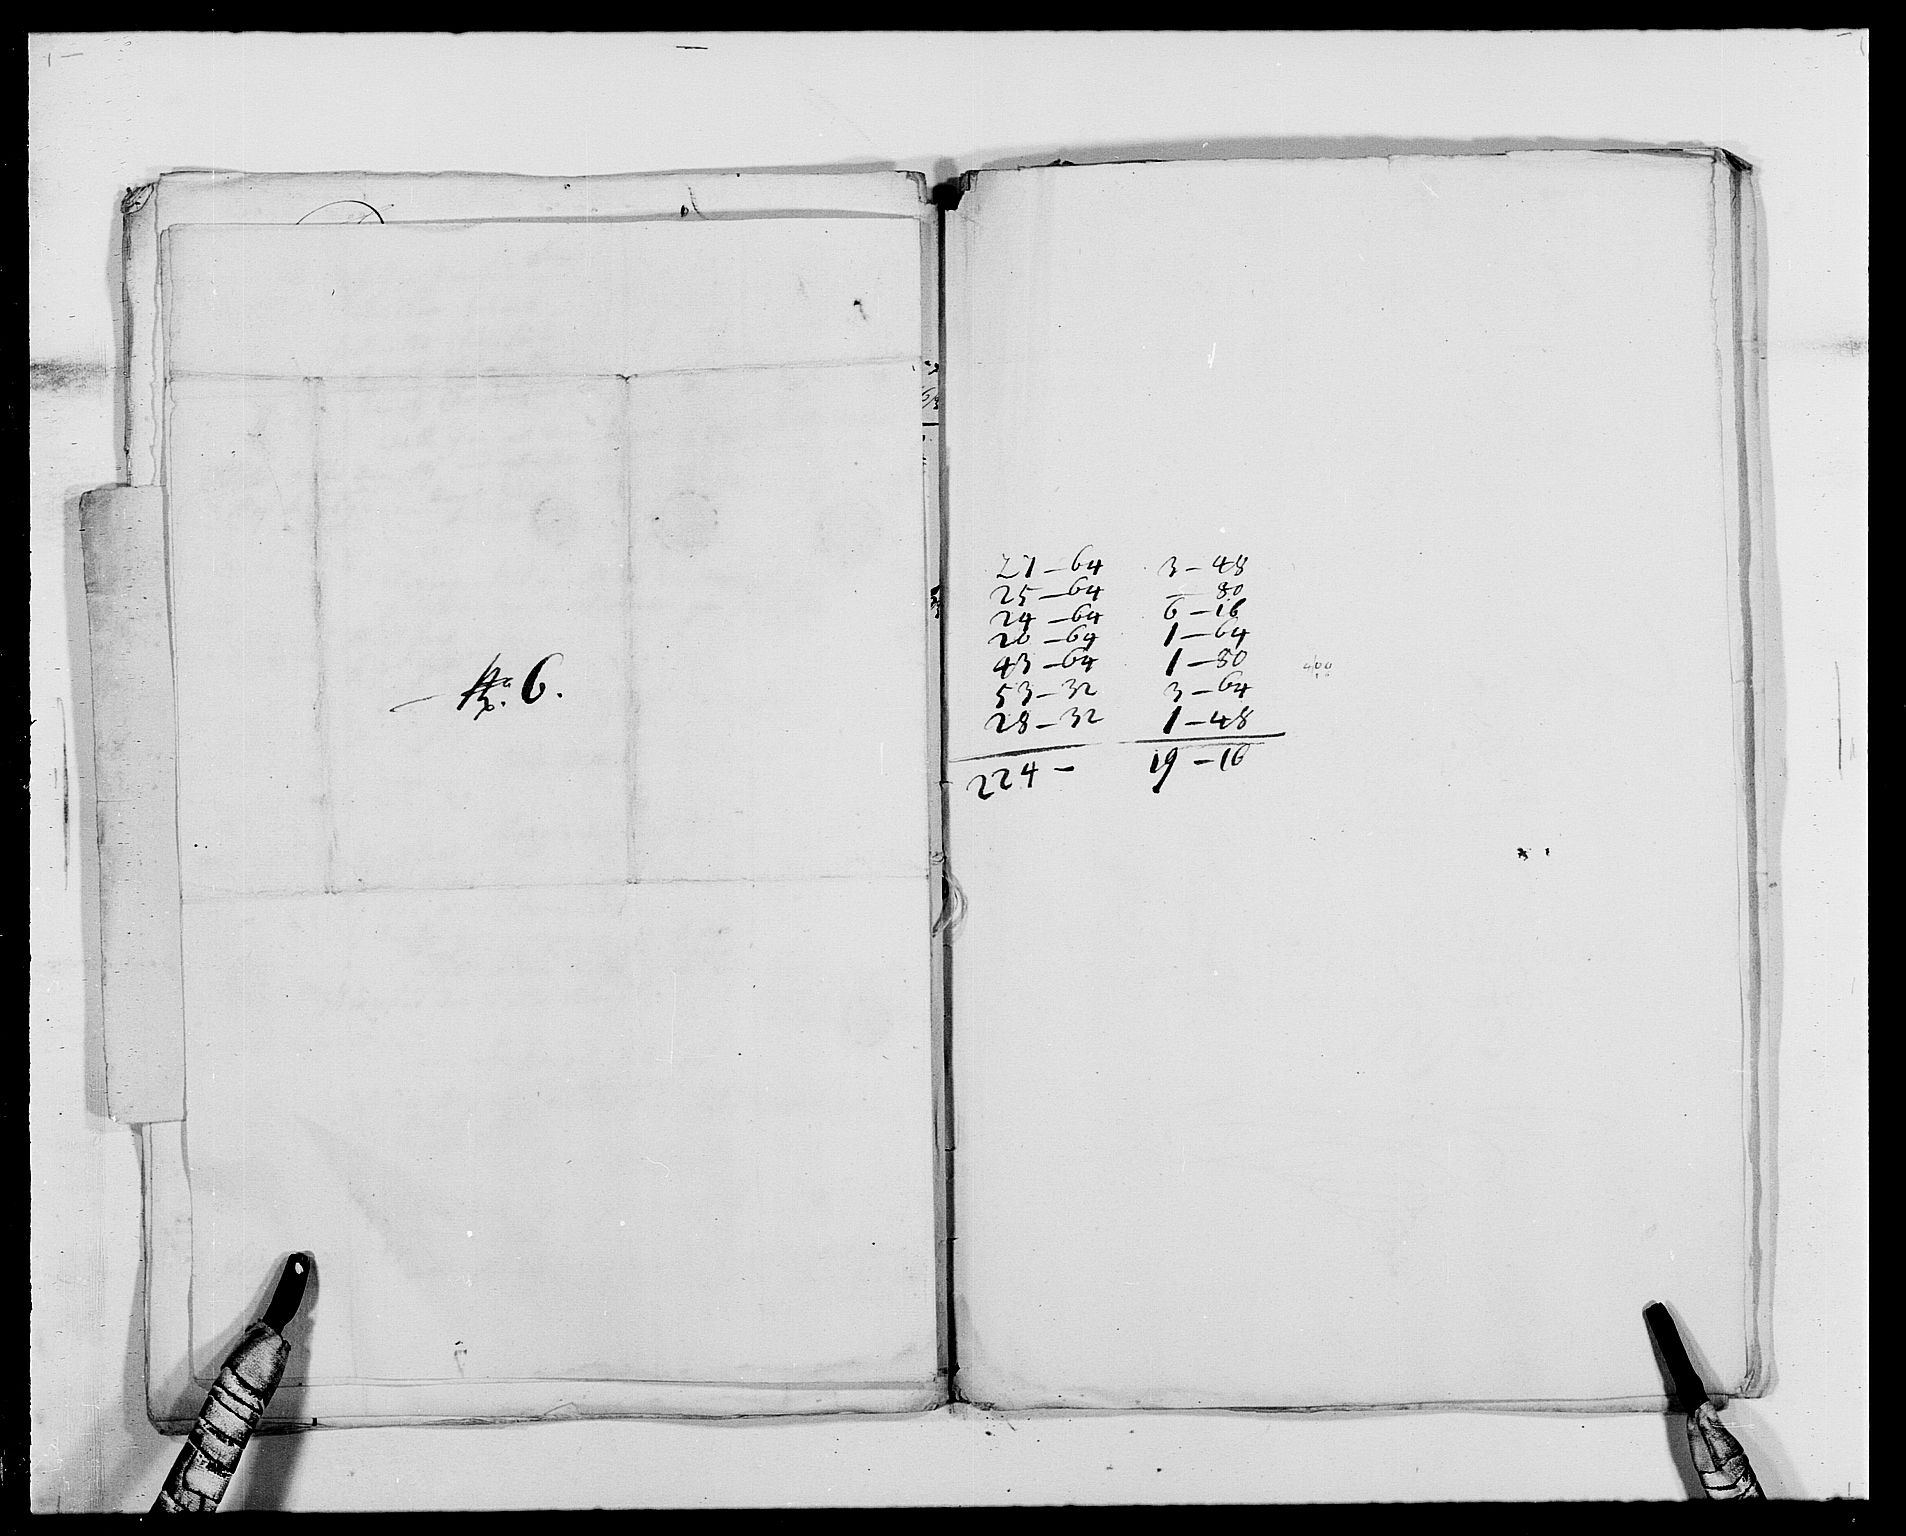 6.
21 – 64   3 – 48
25 – 64   – 80
24 – 64   6 – 16
26 – 64   1 – 64
43 – 64   1 – 80
53 – 32   3 – 64
28 – 32   1 – 48
224 –   19 – 16